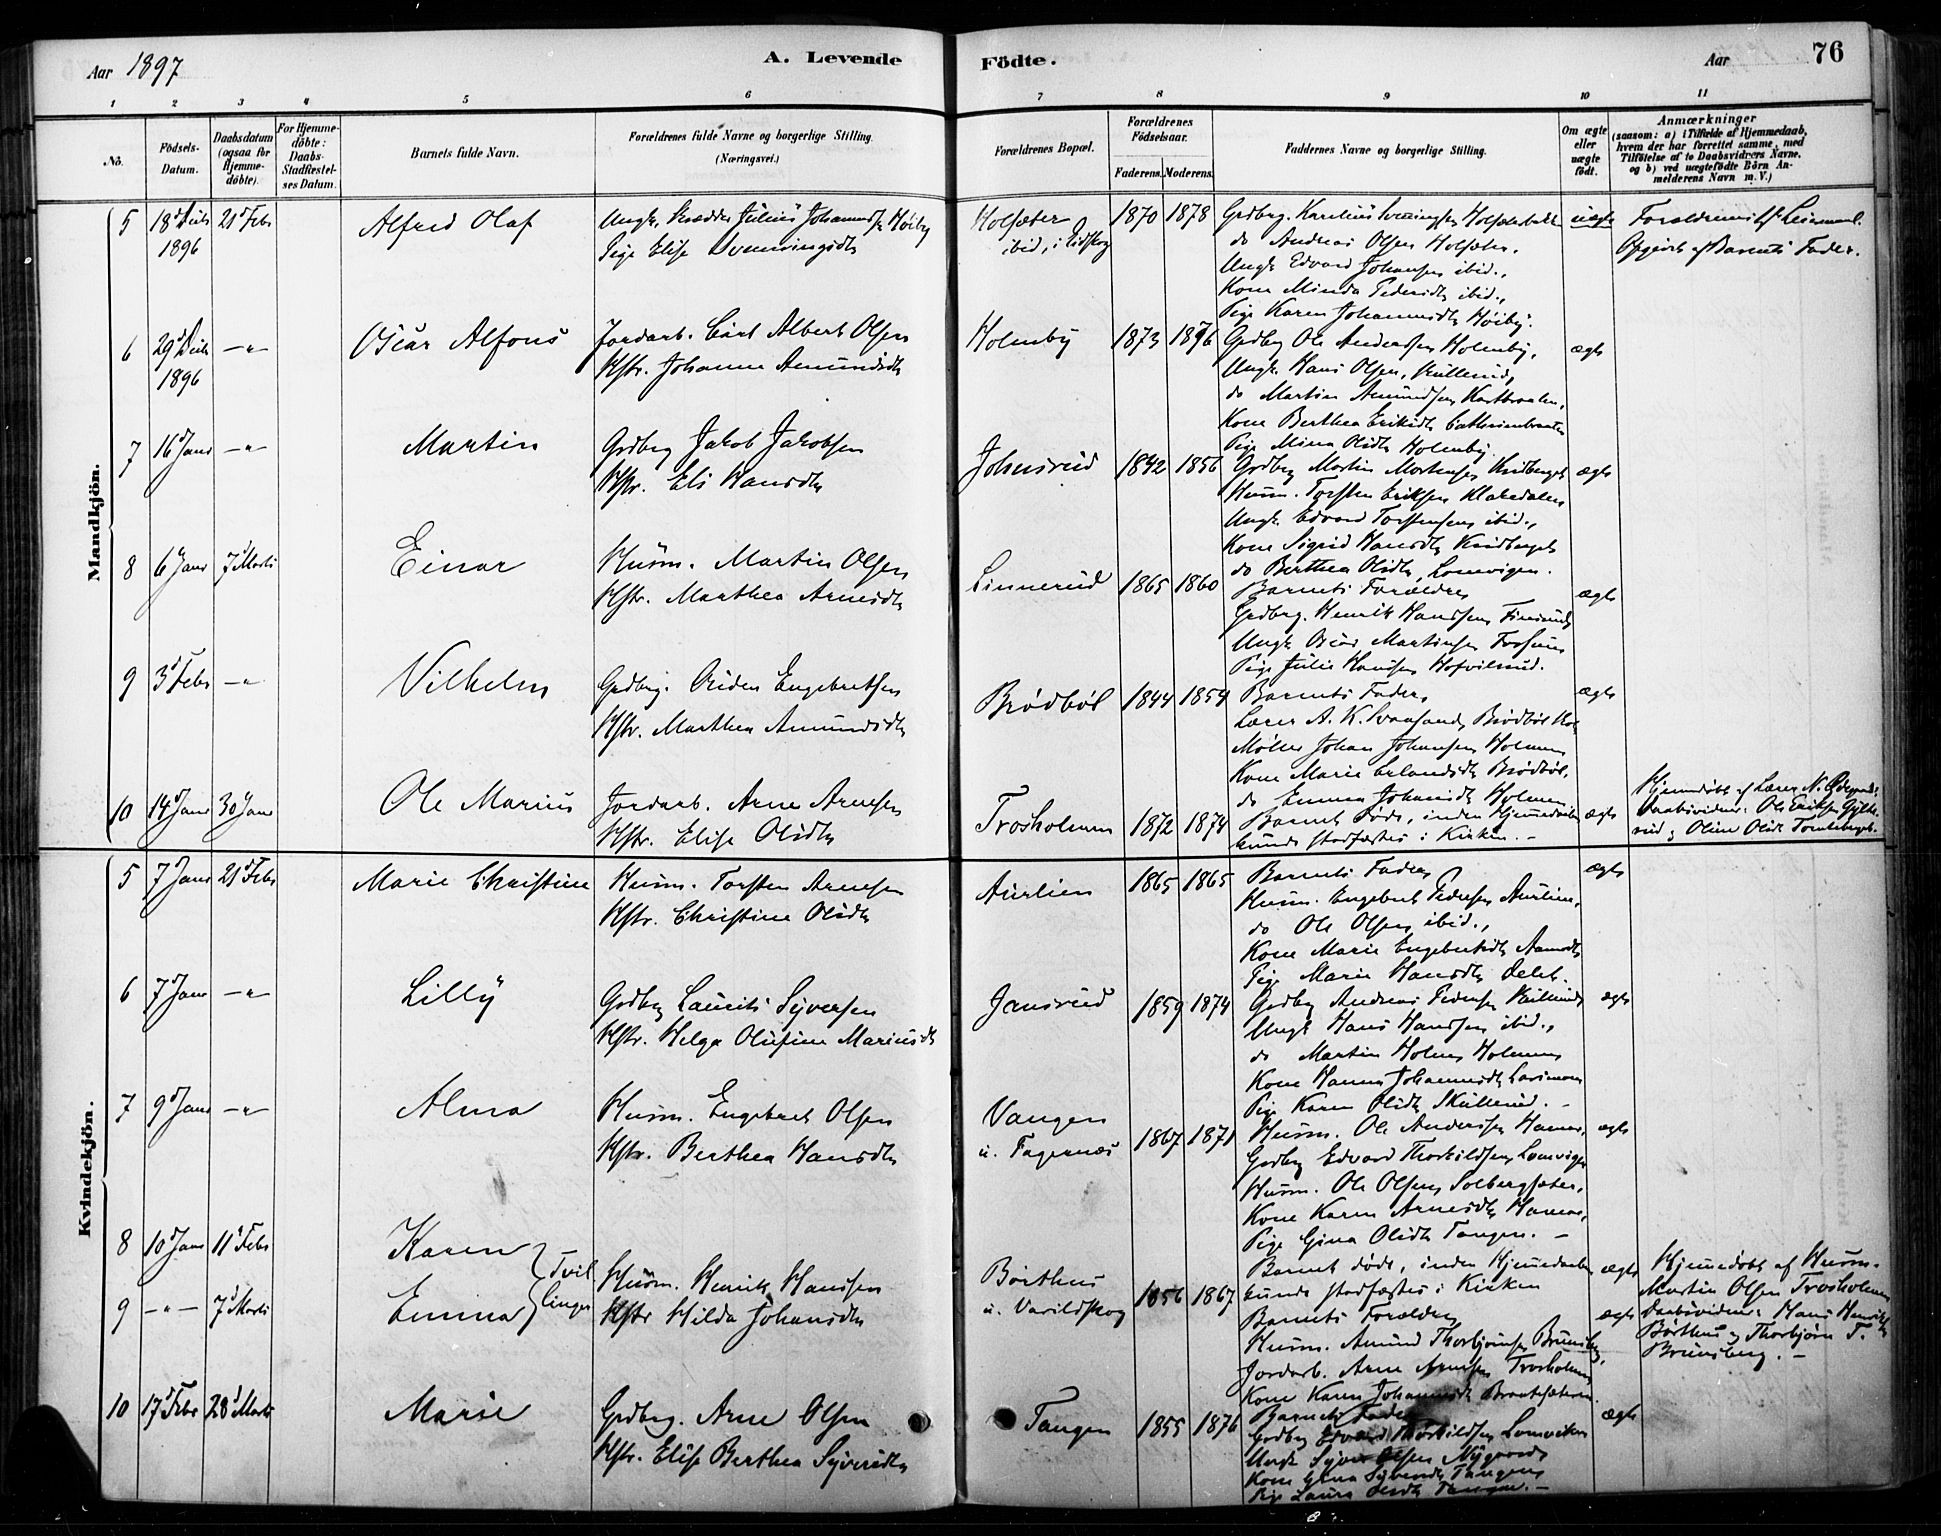 Aar 1897
A. Levende
Födte.
Aar
76
1 2 3 4 5 6 7 8 9 10 11
No.
Födsels-Datum.
Daabsdatum (ogsaa for Hjemme-döbte).
For Hjemme-döbte: Daabs-Stadfæstel-ses Datum.
Barnets fulde Navn.
Forældrenes fulde Navne og borgerlige Stilling. (Næringsvei.)
Forældrenes Bopæl.
Forældrenes Födselsaar.
Faderens. Moderens.
Faddernes Navne og borgerlige Stilling.
Om ægte eller uægte födt.
Anmærkninger
(saasom: a) i Tilfælde af Hjemmedaab, hvem der har forrettet samme, med Tilföielse af to Daabsvidners Navne, og b) ved uægtefödte Börn Anmelderens Navn m. V.)
Mandkjön.
5 18 Decb 1896 21 Febr Alfred Olaf
Pige Elise
Holsæter ibid, i Lidskog 1870 1878
do Andreas Olsen Holsæter.
Ungk. Edvard Johansen ibid.,
Kone Minda Pedersdtr ibid.,
Pige Karen Johannesdtr Høiby.
uægte
Opgivet af Barnets Fader.
6 29 Decb 1896 —"— Oscar Alfons
Jordarb. Carl Albert Olsen
Hstr. Johanne Amundsdtr
Holmby 1873 1876
Grdbrg Ole Andersen Holmby,
Ungk. Hans Olsen, Kullerud,
do Martin Amundsen
Kone Berthea Eriksdtr
Pige Mina Olsdtr Holmby.
ægte
7 16 Janr —"— Martin
Grdbrg Jakob Jakobsen
Hstr. Eli Hansdtr
Johnsrud 1842 1856
Grdbrg Martin Mortensen
Husm. Torsten Eriksen
Ungk. Edvard Torstensen ibid.,
Kone Sigrid Hansdtr
do Berthea Olsdtr, Lomvigen.
ægte
8 6 Janr 7 Marts Einar
Husm. Martin Olsen
Hstr. Marthea Arnesdtr
Linnerud 1865 1860
Barnets Forældre
Grdbrg. Henrik Hansen
Ungk Oscar Martinsen
Pige Julie Hansen
ægte
9 3 Febr —"— Vilhelm
Grdbrg. Auden Engebretsen
Hstr. Marthea Amundsdtr
Brødbøl 1844 1854
Barnets Fader,
Lærer A. K. Svaasand, Brødbøl
Møller Johan Johansen Holmen
Kone Marie Erlandsdtr Brødbøl,
do Emma Johansdtr Holmen
ægte
10 14 Janr 30 Janr Ole Marius
Jordarb. Arne Arnesen
Hstr. Elise Olsdtr
Trosholmen 1872 1874
Barnet døde, inden Hjemmedaaben
kunde stadfæstes i Kirken. —
ægte
Hjemmedøbt af Lærer N.
Daabsvidner: Ole Eriksen
Oline Olsdtr
Kvindekjön.
5 7 Janr 21 Febr Marie Christine
Husm. Torsten Arnesen
Hstr. Christine Olsdtr
Aurlien 1865 1865
Barnets Fader,
Husm. Engebret Pedersen Aurlien,
do Ole Olsen ibid.,
Kone Marie Engebretsdtr
Pige Marie Hansdtr
ægte
6 7 Janr —"— Lilly
Grdbrg Laurits Syversen
Hstr. Helga Olufine Mariusdtr
Jansrud 1859 1874
Grdbrg Andreas Pedersen
Ungk Hans Hansen ibid.,
do Martin Holmen Holmen
Kone Hanna Johannesdtr
Pige Karen Olsdtr Skullerud. —
ægte
7 9 Janr —"— Alma
Husm. Engebret Olsen
Hstr. Berthea Hansdtr
Vangen
u. Fagernæs 1867 1871
Husm. Ole Andersen
Grdbrg Edvard Thorkildsen Lomvigen
Husm. Ole Olsen, Solbergsæter,
Kone Karen Arnesdtr
Pige Gina Olsdtr Tangen. —
ægte
8 10 Janr 11 Febr Karen } Tvil
9 —"— 7 Marts Emma } linger
Husm. Henrik Hansen
Hstr Hilda Johansdtr
Børthus
u. Varildskog 1856 1867
Barnet døde, inden Hjemmedaaben
kunde stadfæstes i Kirken
Barnets Forældre
Husm. Amund Thorbjørnsen Brunsberg,
Jordarb. Arne Arnesen Trosholmen
Kone Karen Johannesdtr
ægte
ægte
Hjemmedøbt af Husm.
Martin Olsen Trosholmen
Daabsvidner: Hans
Børthus og Thorbjørn T.
Brunsberg. —
10 17 Febr 28 Marts Marie
Grdbrg. Arne Olsen
Hstr. Elise Berthea Syversdtr
Tangen 1855 1876
Barnets Fader
Grdbrg Edvard Thorkildsen Lomviken
Ungk Syver Olsen Nygaard
Kone Gina Syversdtr Tangen
Pige Laura Olsdtr Tangen. —
ægte